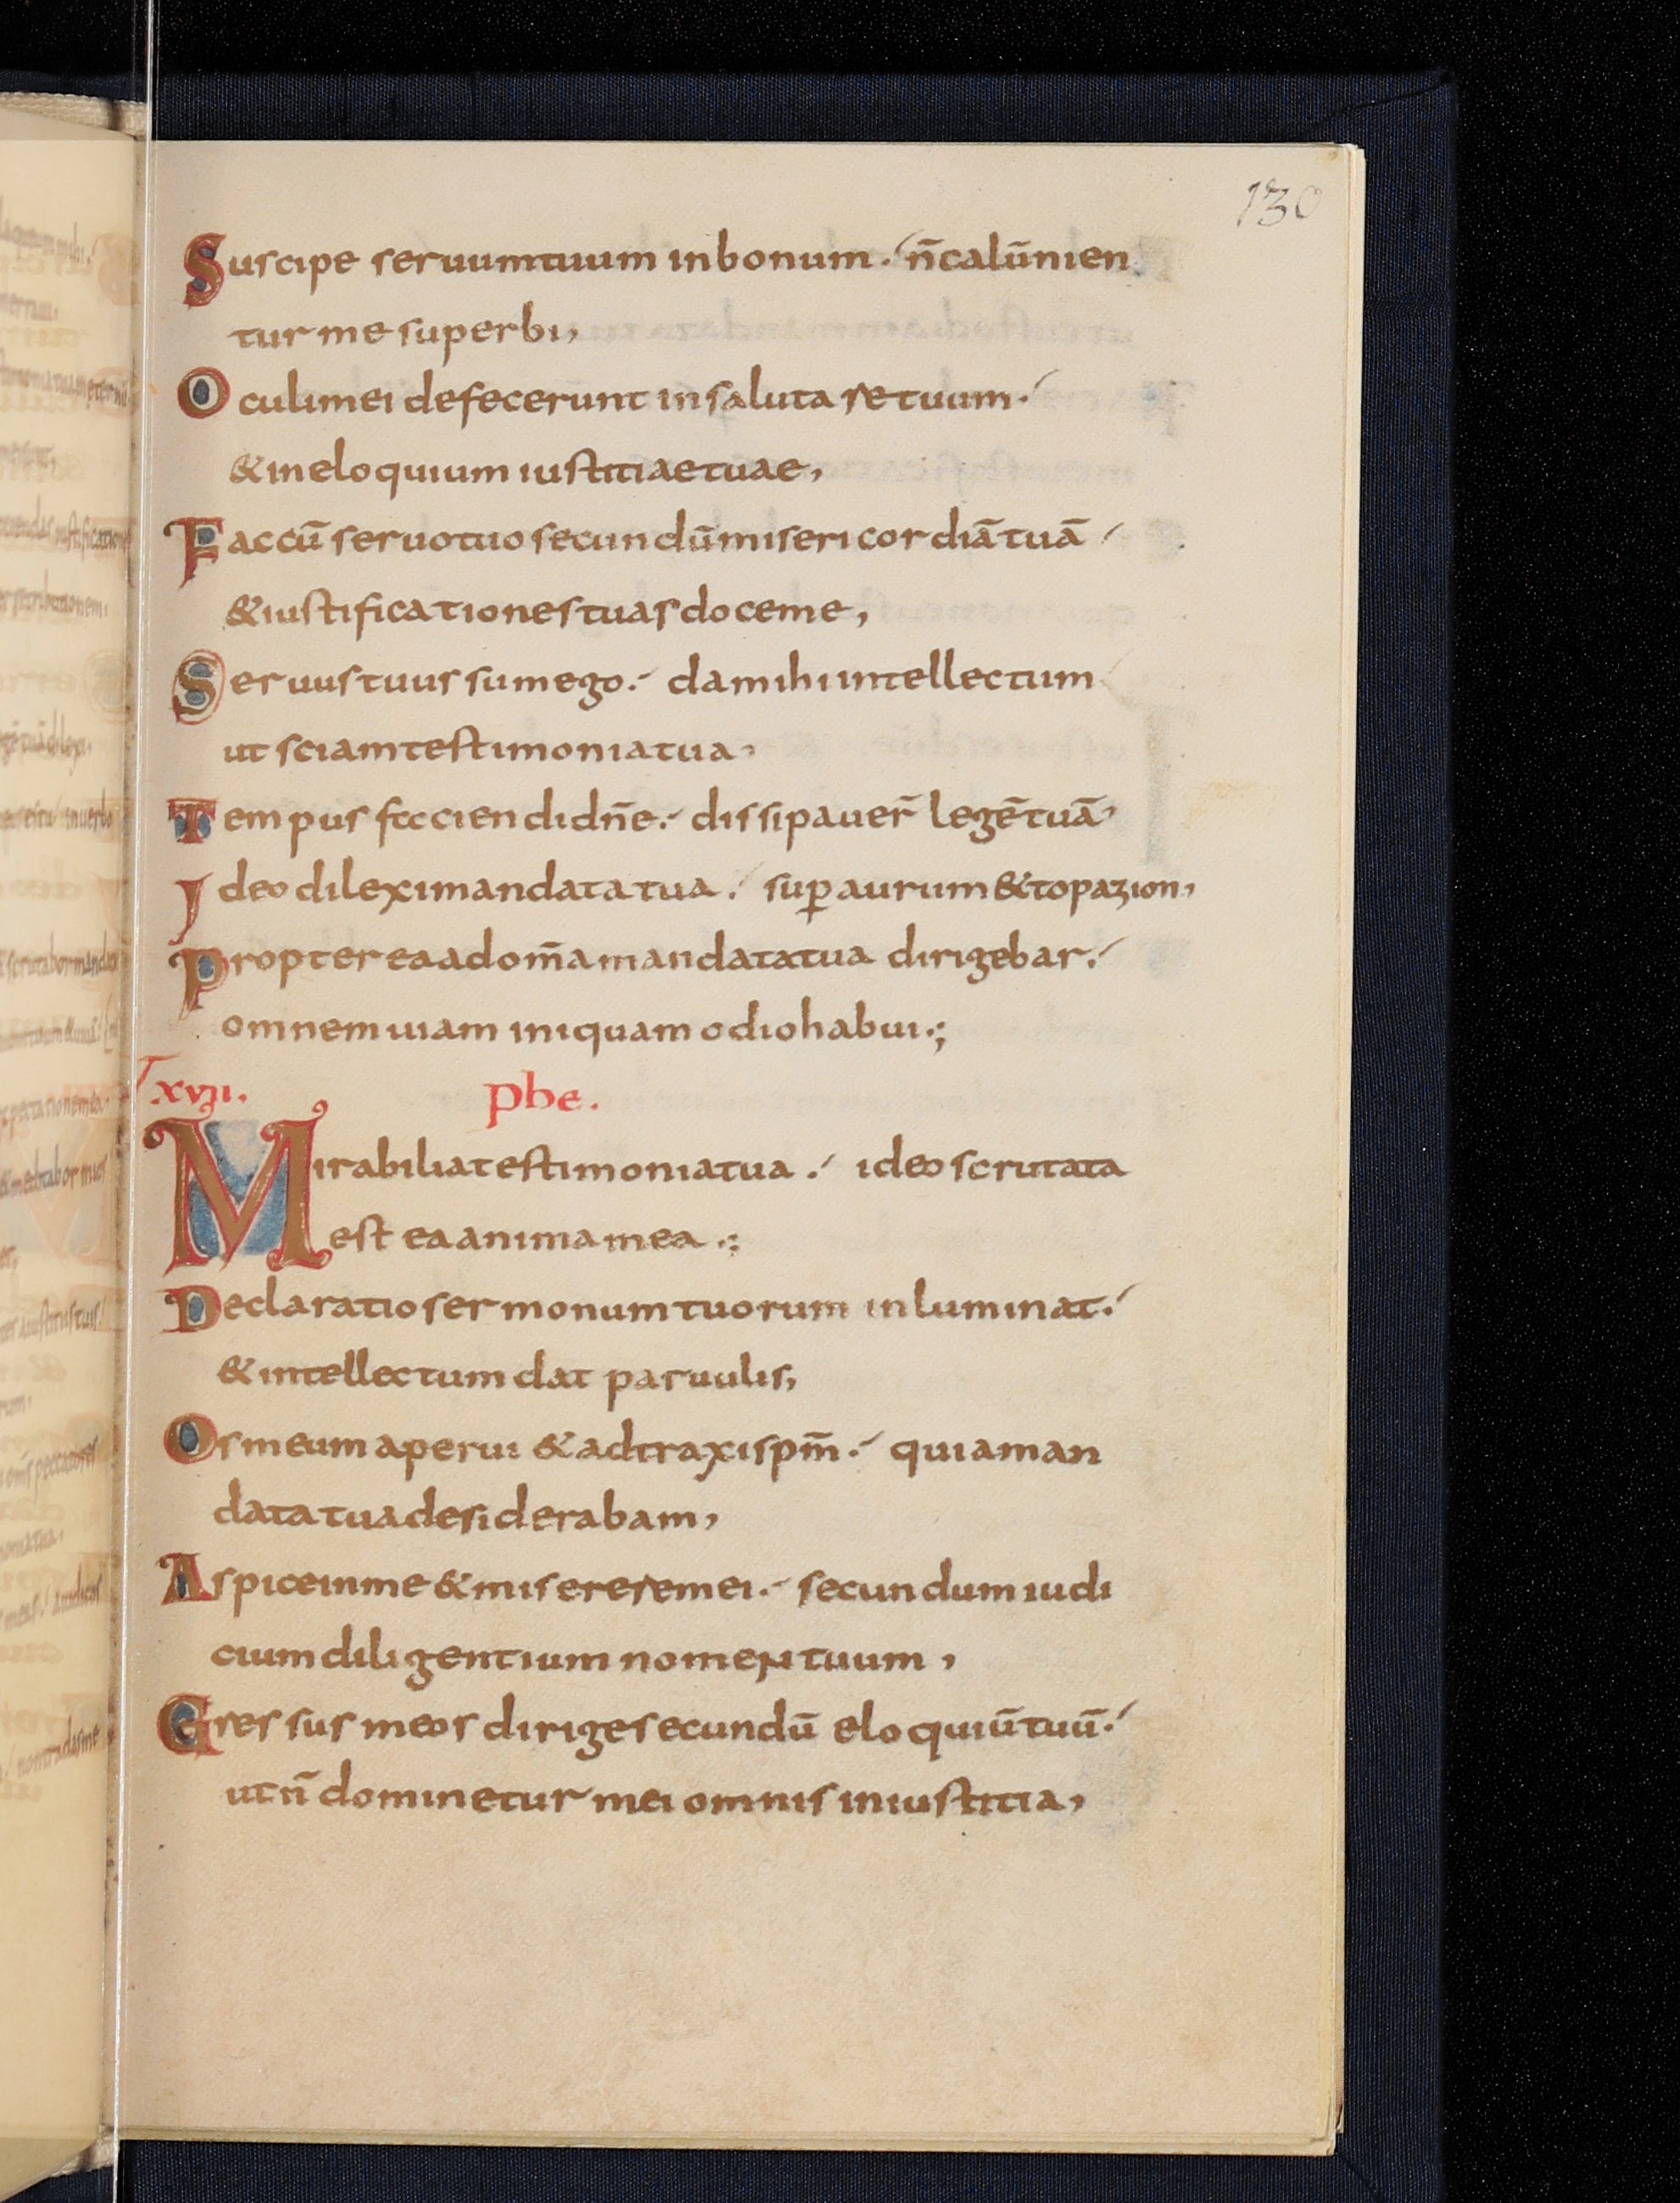 130
Suscipe seruum tuum in bonum. n̄ calūnien
tur me superbi,
Oculi mei defecerunt in salutare tuum.
& in eloquium iustitiae tuae,
Fac cū seruo tuo secundū misericordiā tuā
& iustificationes tuas doce me,
Seruus tuus sum ego. da mihi intellectum
ut sciam testimonia tua,
Tempus facciendi dn̄e. dissipauer̄ legē tuā,
Ideo dilexi mandata tua. suꝑ aurum & topazion,
Propterea ad om̄a mandata tua dirigebar.
omnem uiam iniquam odio habui.;
xvii. phe.
Mirabilia testimonia tua. ideo scrutata
est ea anima mea.;
Declaratio sermonum tuorum inluminat.
& intellectum dat paruulis,
Os meum aperui & adtraxi spm̄. quia man
data tua desiderabam,
Aspice in me & miserere mei. secundum iudi
cium diligentium nomen tuum,
Gressus meos dirige secundū eloquiū tuū.
ut n̄ dominetur mei omnis iniustitia,